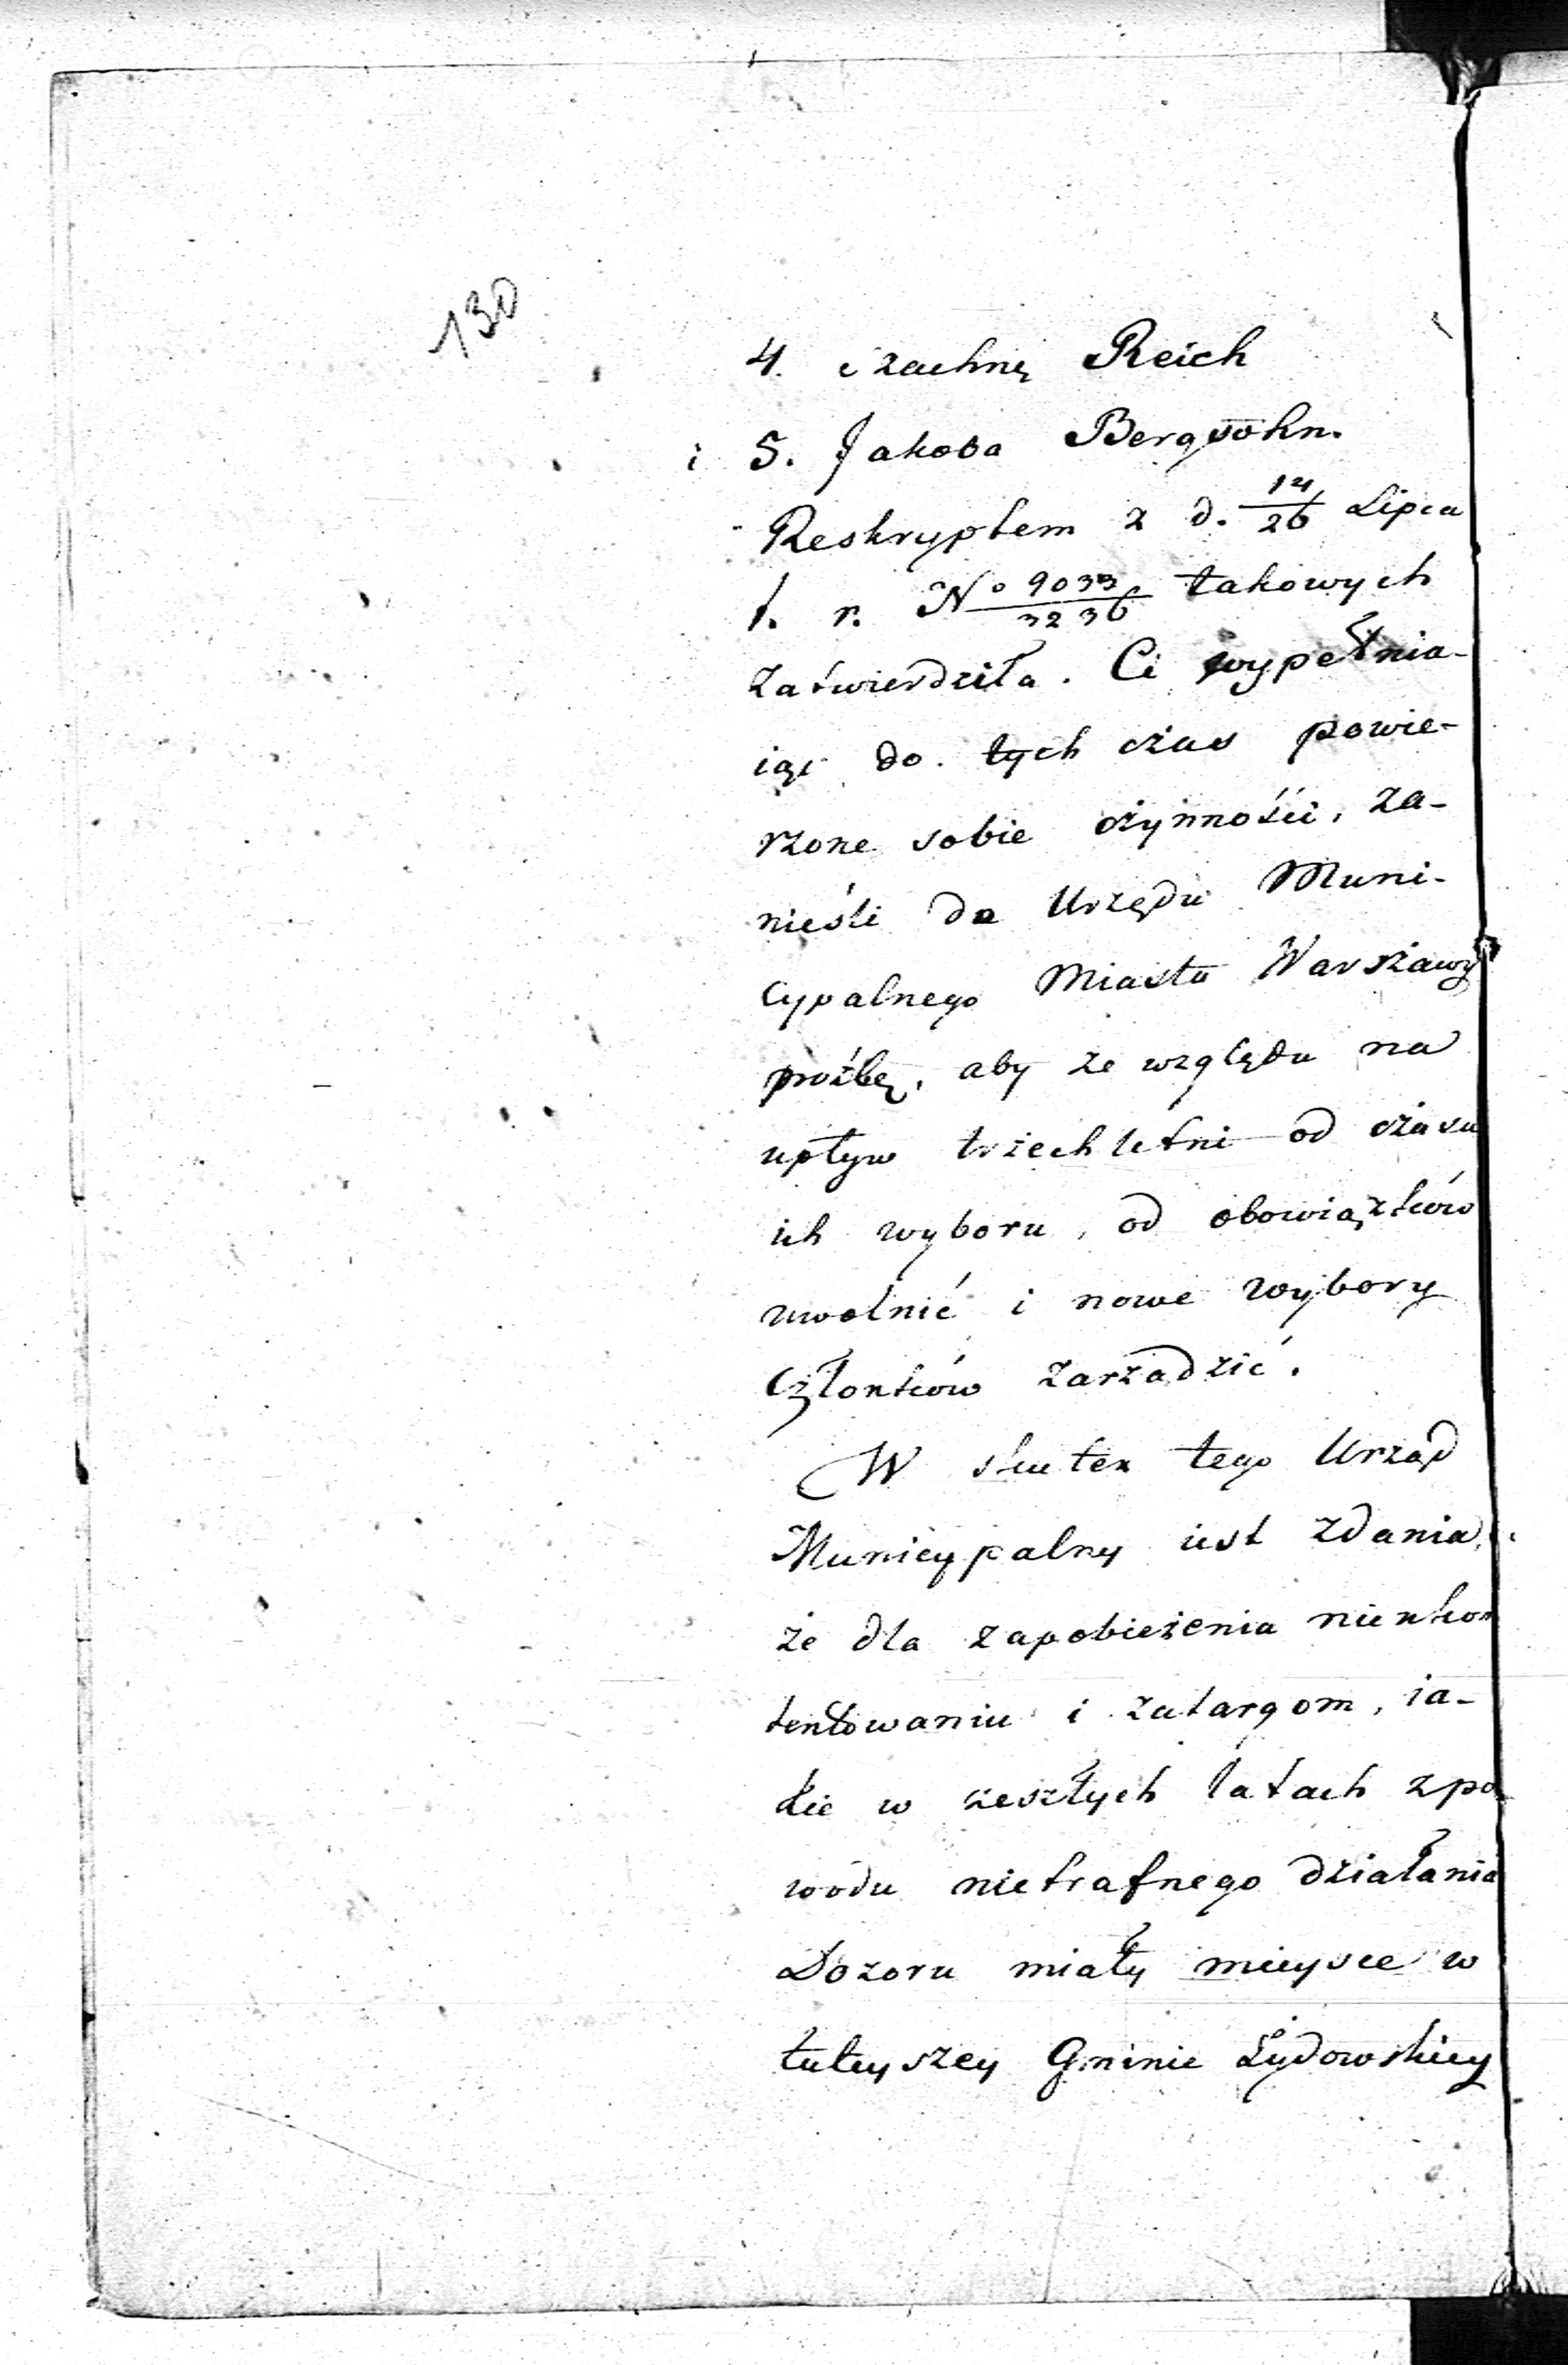 130
4. Izachnę Reich
i 5. Jakoba Bergsohn.
Reskryptem z d. 14/26 Lipca
t. r. No 9033/3236 takowych
zatwierdziła. Ci wypełnia-
iąc do tych czas powie-
rzone sobie czynności, za-
nieśli do Urzędu Muni-
cypalnego Miasta Warszawy
proźbę, aby ze względu na
upływ trzechletni od czasu
ich wyboru, od obowiązków
uwolnić i nowe wybory
Członków zarządzić.
W skutek tego Urząd
Municypalny iest zdania,
że dla zapobieżenia nieukon
tentowaniu i zatargom, ia-
kie w zeszłych latach z po
wodu nietrafnego działania
Dozoru miały mieysce w
tuteyszey Gminie Żydowskiey